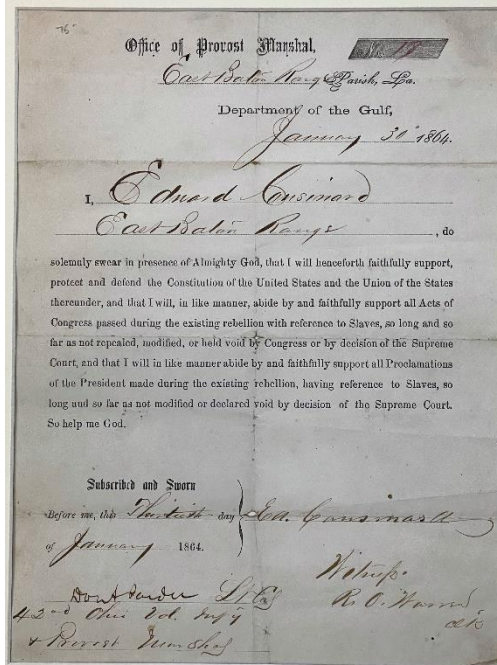 Office of Provost Marshal,
No 19
East Baton Rouge Parish, La.
Department of the Gulf,
January 30" 1864.
I, Edward Cousinard
East Baton Rouge , do
solemnly swear in presence of Almighty God, that I will henceforth faithfully support,
protect and defend the Constitution of the United States and the Union of the States
thereunder, and that I will, in like manner, abide by and faithfully support all Acts of
Congress passed during the existing rebellion with reference to Slaves, so long and so
far as not repealed, modified, or held void by Congress or by decision of the Supreme
Court, and that I will in like manner abide by and faithfully support all Proclamations
of the President made during the existing rebellion, having reference to Slaves, so
long and so far as not modified or declared void by decision of the Supreme Court.
So help me God.
Subscribed and Sworn
Before me, this Thirtieth day
of January 1864.
Ed. Cousinard
Don A Pardee Lt Col
42nd Ohio Vol. Inf'y
& Provost Marshal
Witness.
R. O.